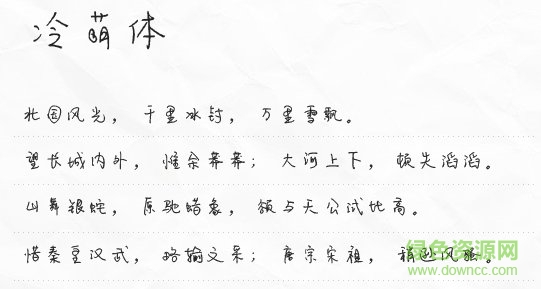 冷萌体
北国风光，千里冰封，万里雪飘。
望长城内外，惟余莽莽；大河上下，顿失滔滔。
山舞银蛇，原驰蜡象，欲与天公试比高。
惜秦皇汉武，略输文采；唐宗宋祖，稍逊风骚。
绿色资源网
www.downcc.com